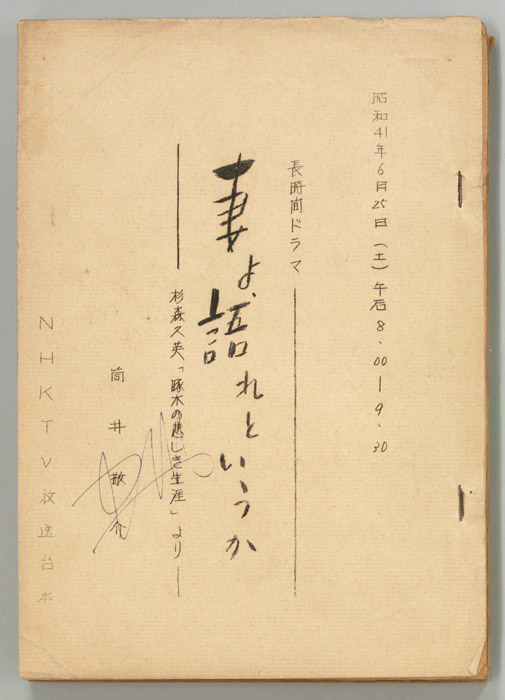 昭和41年6月25日（土）午后8.00―9.30
長時間ドラマ
妻よ、語れというか
杉森久英「啄木の悲しき生涯」より
筒井敬介
NHKTV放送台本